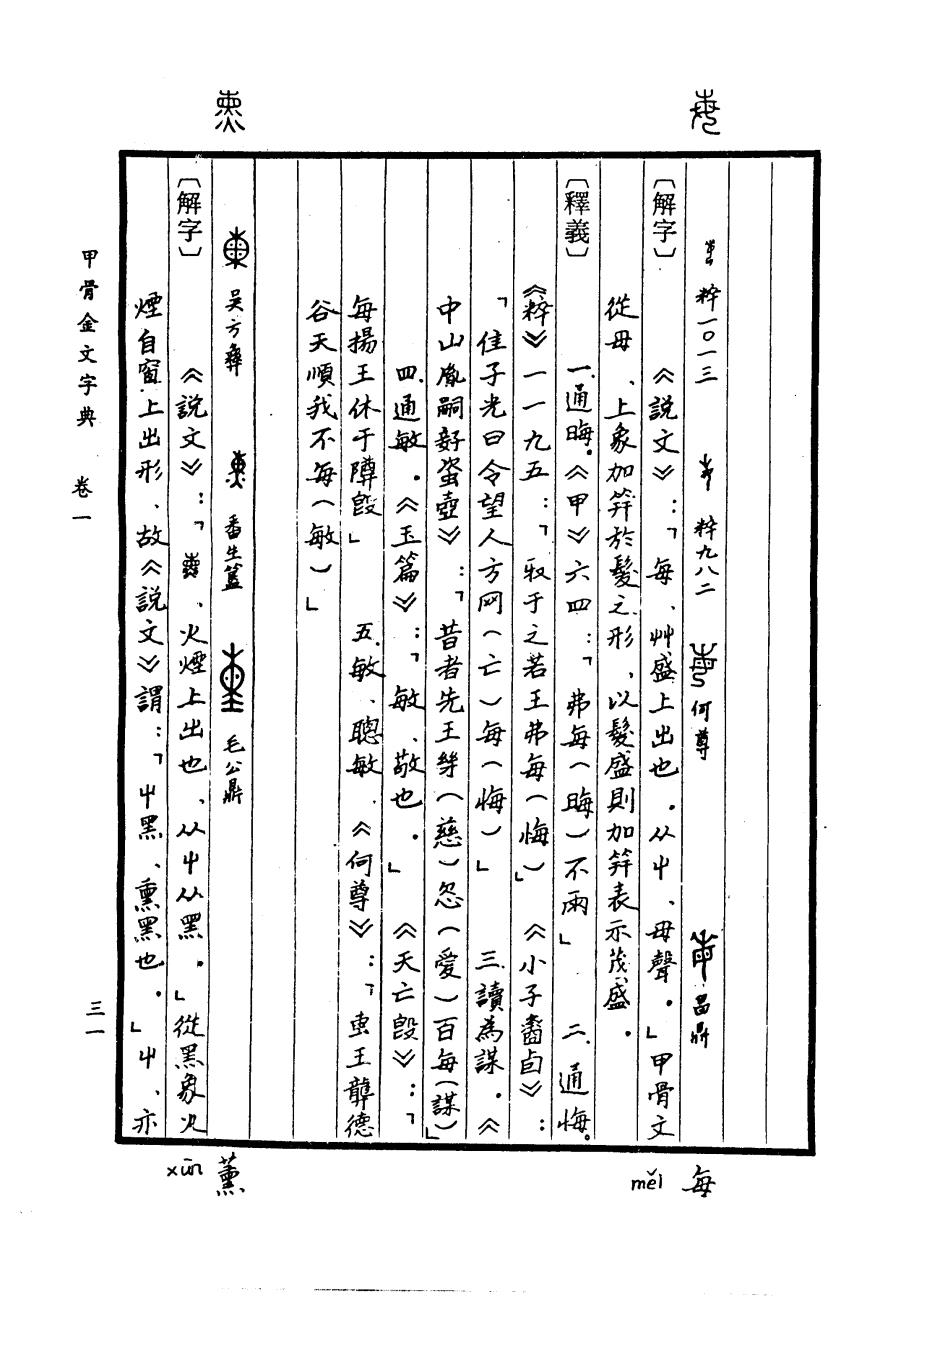 每 měi
粹一〇一三 粹九八二 何尊 曶鼎
〔解字〕《説文》：「每、艸盛上出也。从屮、母聲。」甲骨文
從母、上象加笄於髮之形，以髮盛則加笄表示茂盛。
〔釋義〕一.通晦。《甲》六四：「弗每（晦）不雨」 二.通悔。
《粹》一一九五：「㞋于之若王弗每（悔）」《小子𤔲卣》：
「隹子光曰令望人方网（亡）每（悔）」 三.讀為謀。《
中山胤嗣㚼蚉壺》：「昔者先王㜽（慈）㤅（愛）百每（謀）」
四.通敏。《玉篇》：「敏、敬也。」《天亡𣪘》：「
每揚王休于䵼𣪘」 五.敏、聰敏.《何尊》：「叀王龏德
谷天順我不每（敏）」
薰 xūn
吴方彝 番生簋 毛公鼎
〔解字〕《説文》：「、火煙上出也、从屮从黑。」從黑象火
煙自窗上出形、故《説文》謂：「屮黑、熏黑也。」屮、亦
甲骨金文字典 卷一
三一